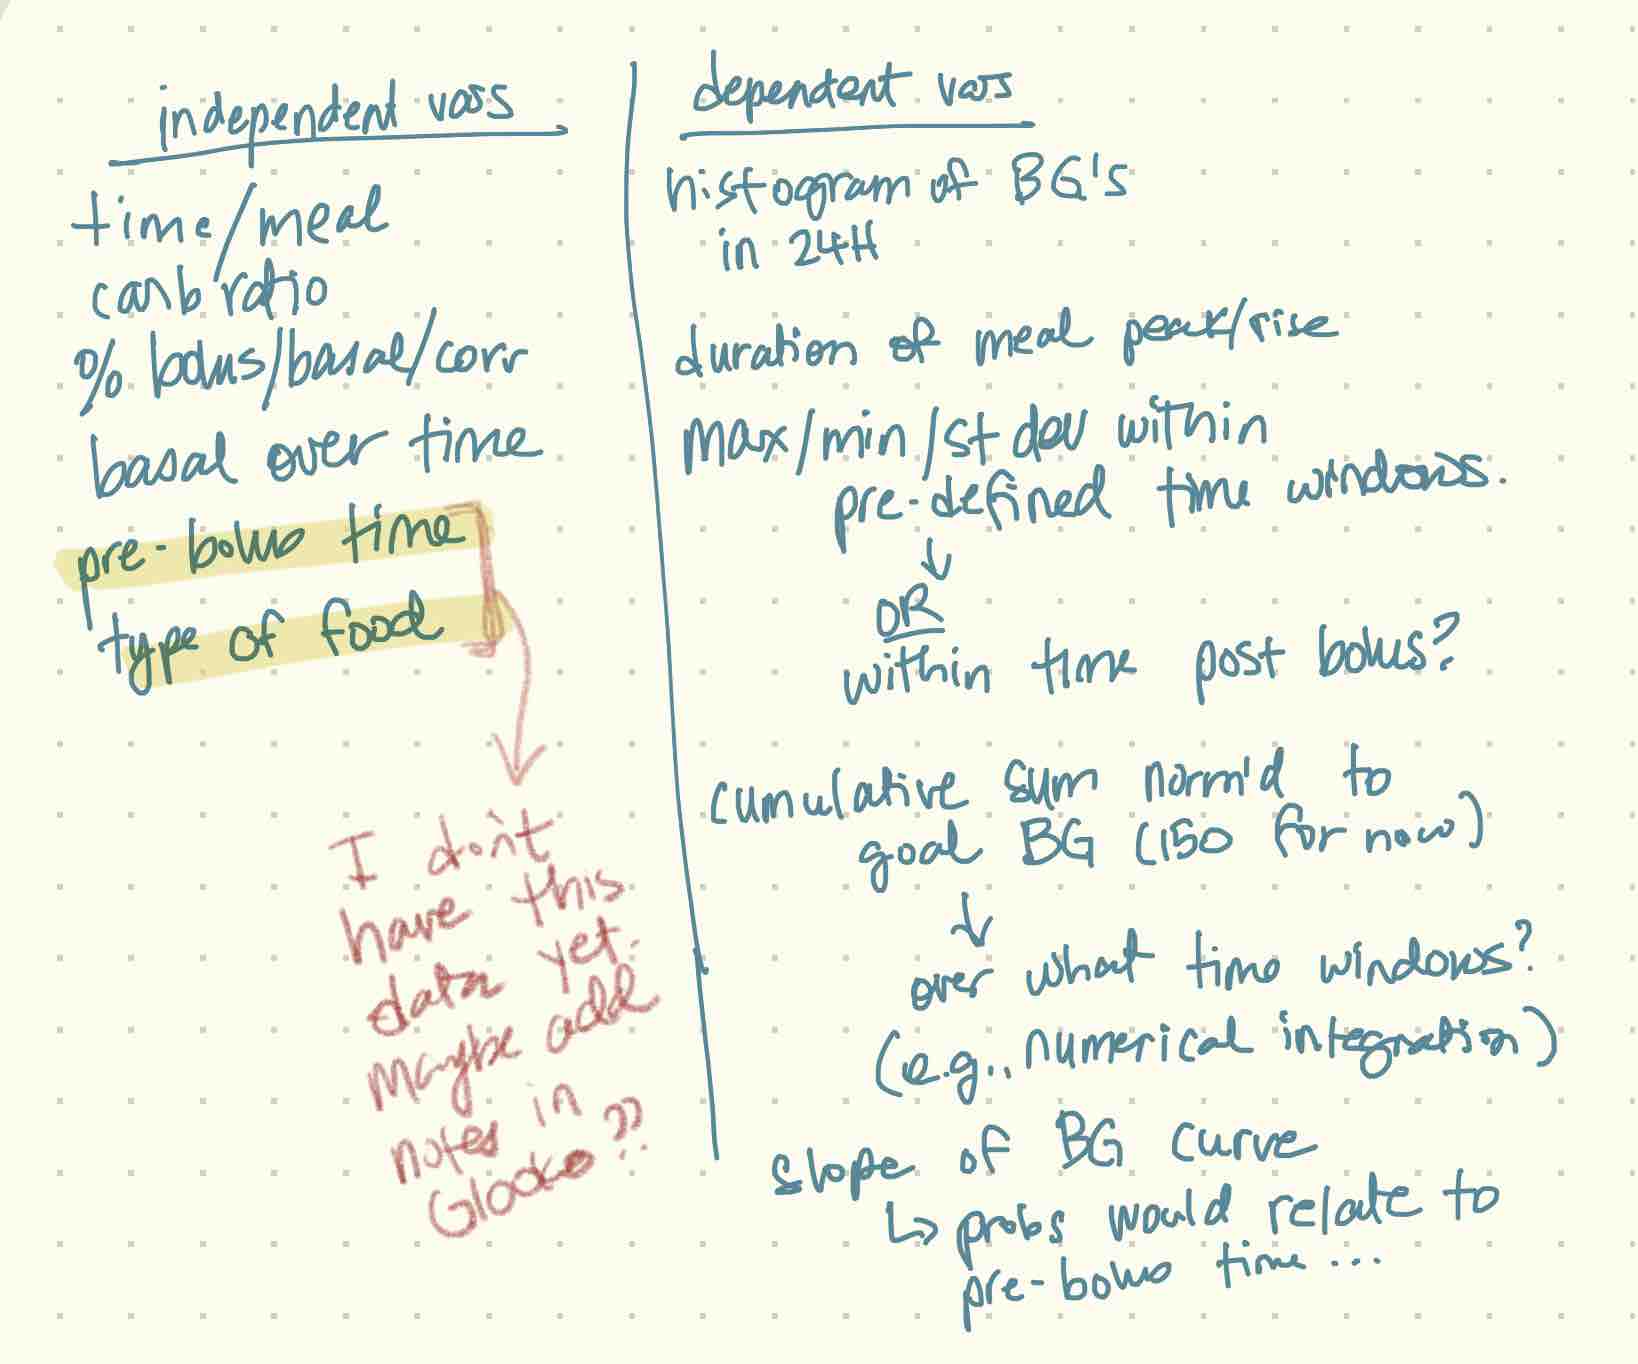 independent vars
time/meal
carb ratio
% bolus/basal/corr
basal over time
pre-bolus time
type of food
I don't
have this
data yet.
Maybe add
notes in
Glooko??
dependent vars
histogram of BG's
in 24H
duration of meal peak/rise
max/min/st dev within
pre-defined time windows.
↓
OR
within time post bolus?
cumulative sum norm'd to
goal BG (150 for now)
↓
over what time windows?
(e.g., numerical integration)
slope of BG curve
↳ probs would relate to
pre-bolus time ...